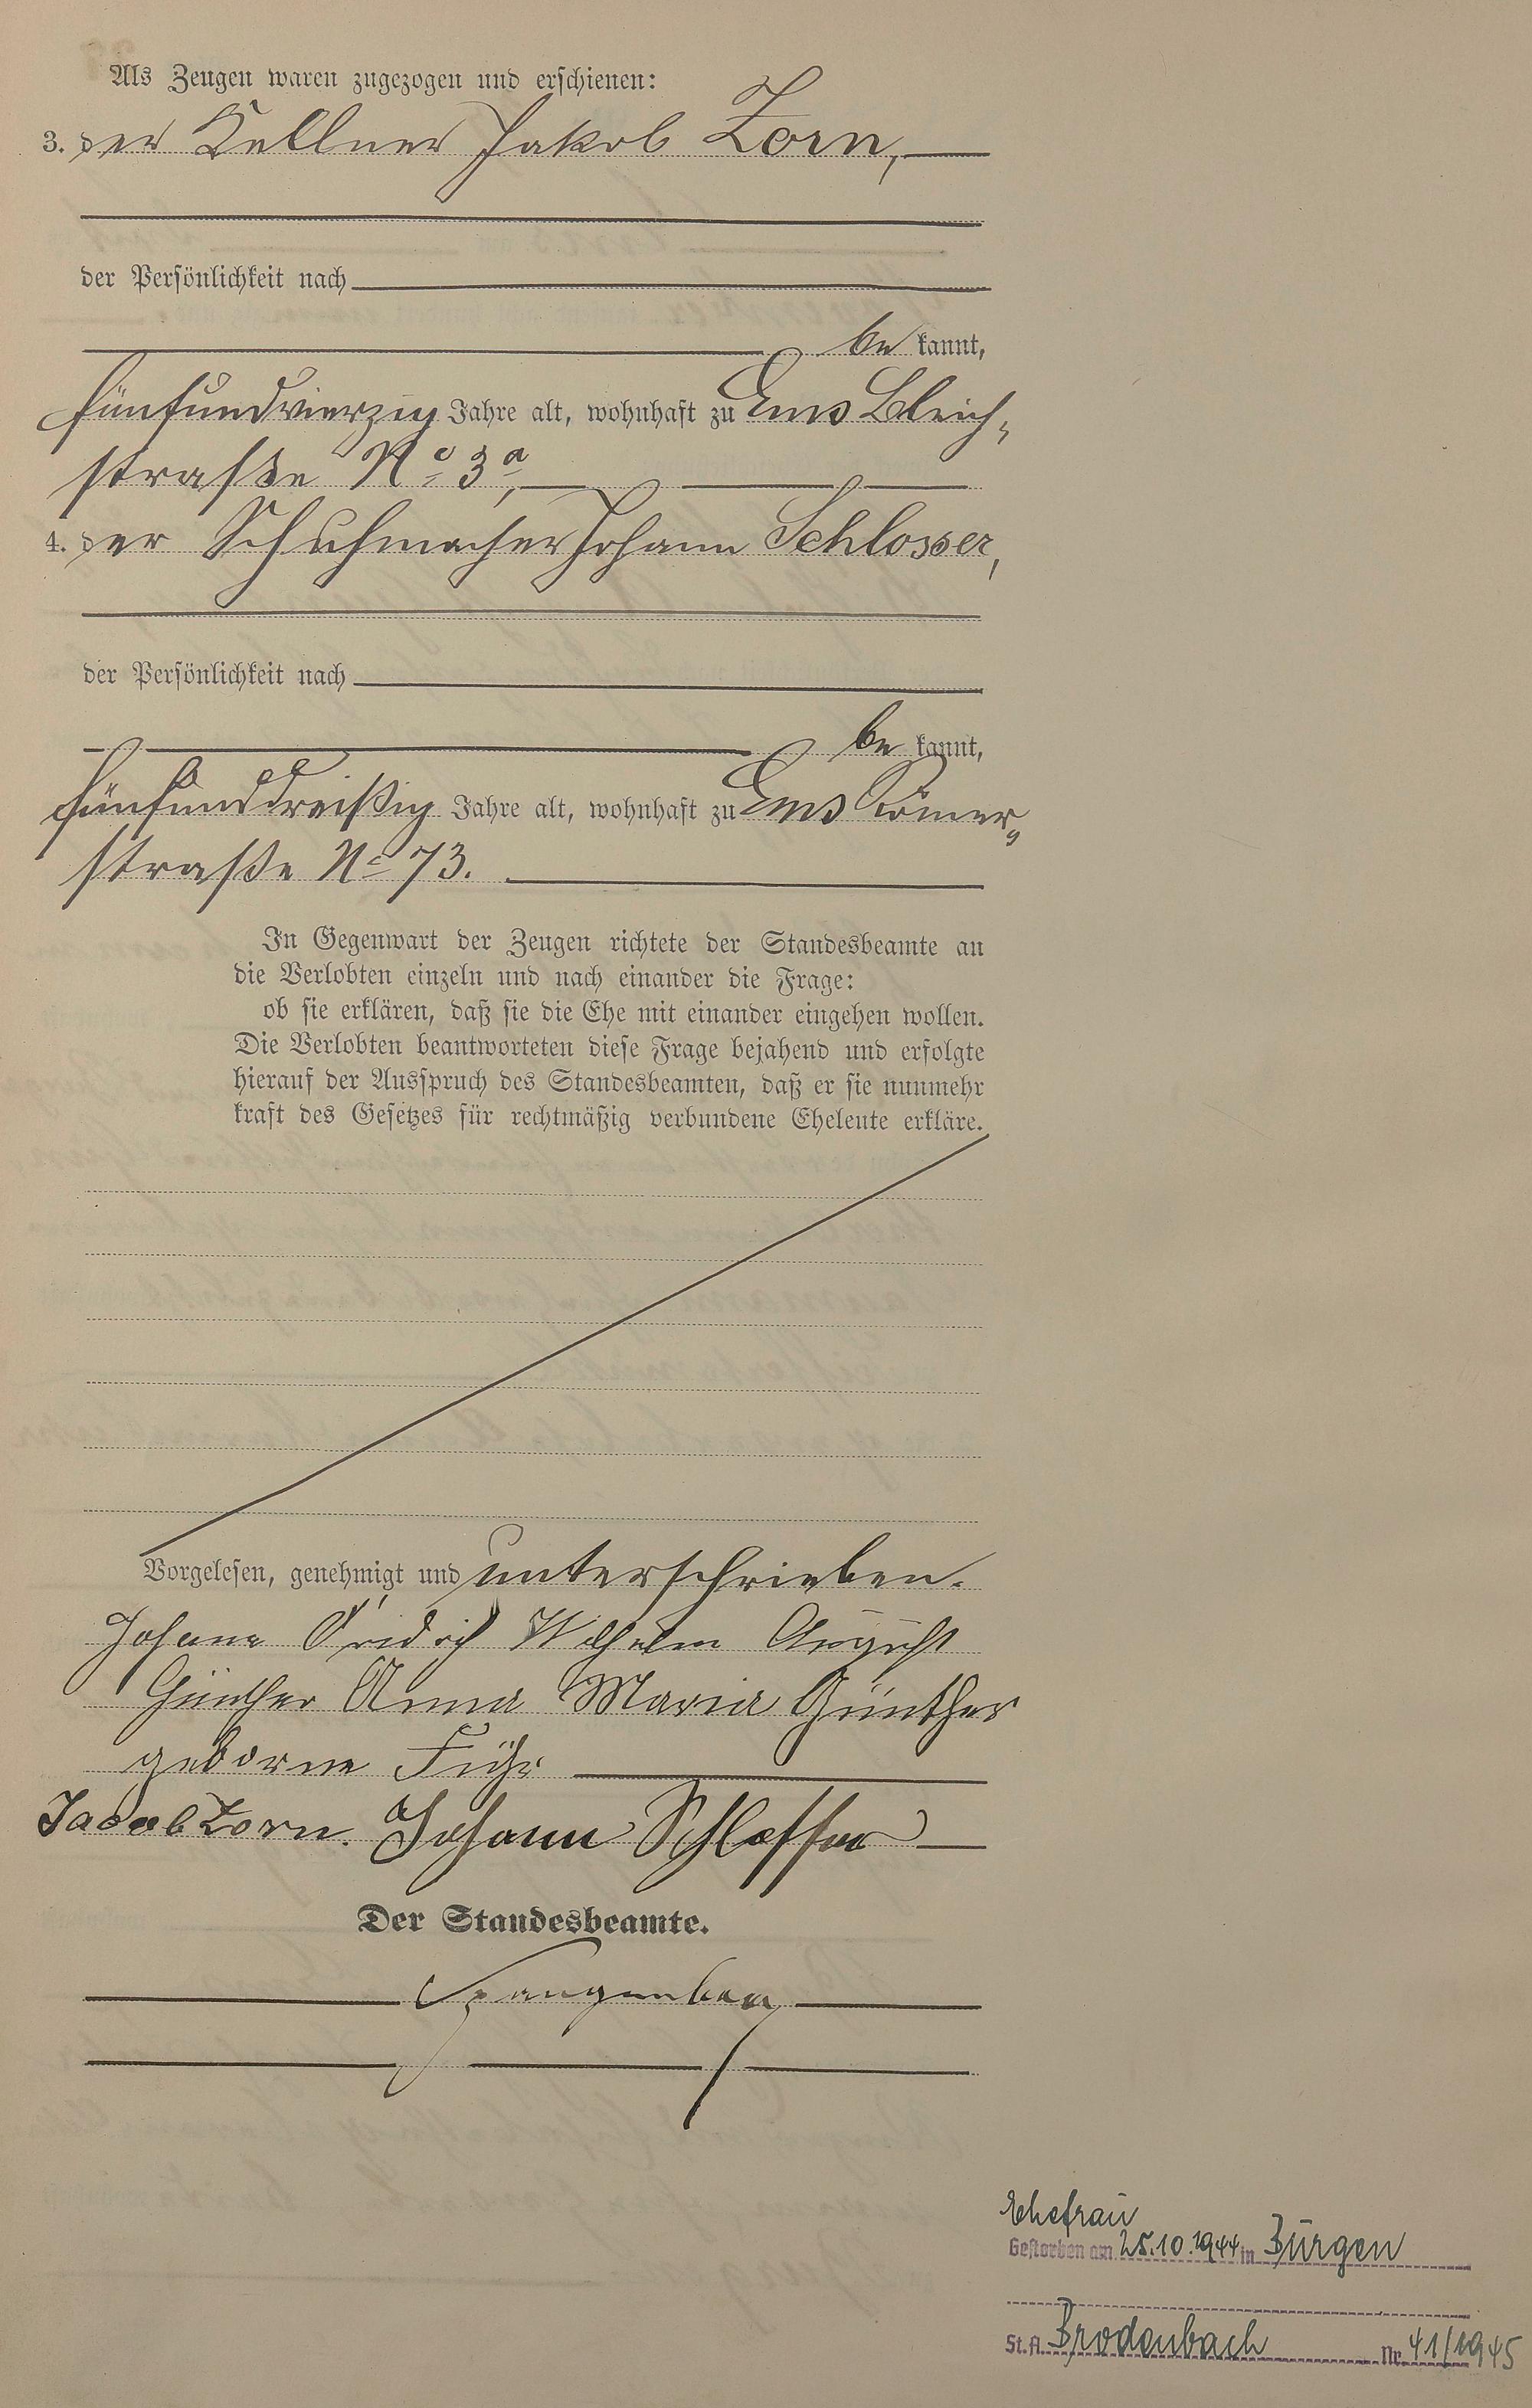 Als Zeugen waren zugezogen und erschienen:
3. der Kellner Jakob Zorn,
der Persönlichkeit nach
be kannt,
fünfundvierzig Jahre alt, wohnhaft zu Ems Bleich-
straße No 3a,
4. der Schuhmacher Johann Schlosser,
der Persönlichkeit nach
be kannt,
fünfunddreißig Jahre alt, wohnhaft zu Ems Römer-
straße No 73.
In Gegenwart der Zeugen richtete der Standesbeamte an
die Verlobten einzeln und nach einander die Frage:
ob sie erklären, daß sie die Ehe mit einander eingehen wollen.
Die Verlobten beantworteten diese Frage bejahend und erfolgte
hierauf der Ausspruch des Standesbeamten, daß er sie nunmehr
kraft des Gesetzes für rechtmäßig verbundene Eheleute erkläre.
Vorgelesen, genehmigt und unterschrieben.
Johann Fridrich Wilhelm August
Günther Anna Maria Günther
geborne Führ
Jacob Zorn. Johann Schlosser
Der Standesbeamte.
Ehefrau
Gestorben am 25.10.1944 in Burgen
St. A. Brodenbach Nr. 41/1945